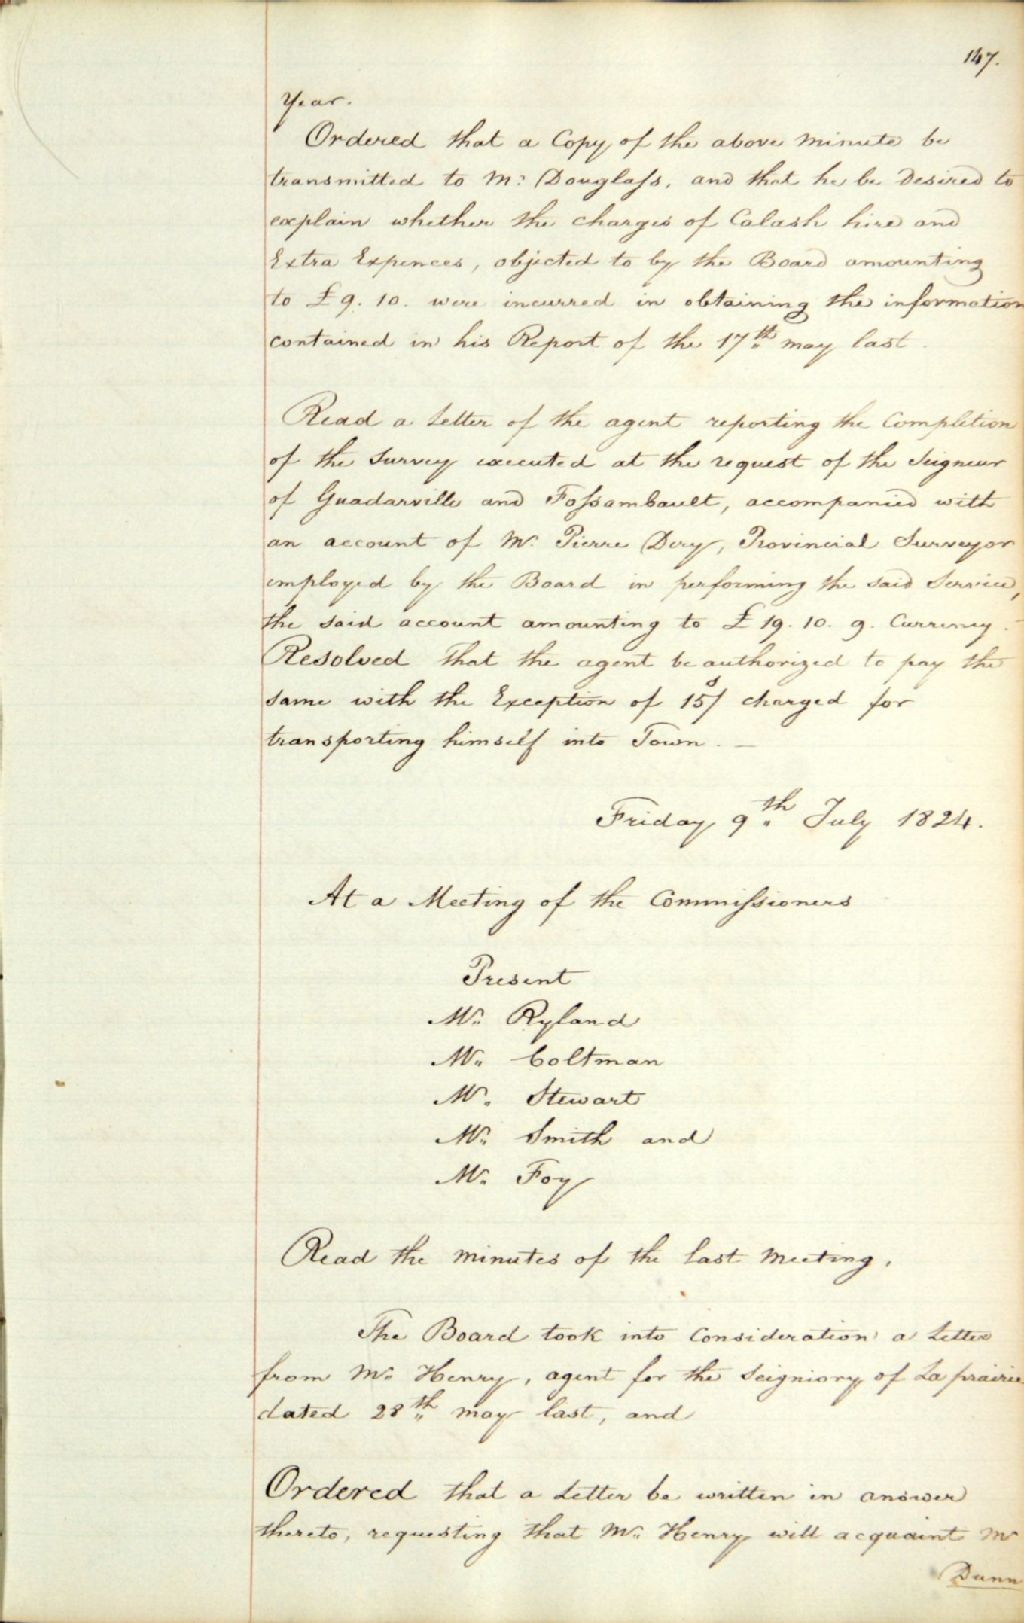 147.
Year.
Ordered that a Copy of the above minute be
transmitted to Mr. Douglass, and that he be Desired to
explain whether the charges of Calash hire and
Extra Expences, objected to by the Board amounting
to £9. 10. were incurred in obtaining the information
contained in his Report of the 17th may last.
Read a Letter of the agent reporting the Completion
of the Survey executed at the request of the Seigneur
of Guadarville and Fossambault, accompanied with
an account of Mr. Pierre Dery, Provincial Surveyor
employed by the Board in performing the said Service,
the said account amounting to £19. 10. 9. Currency.
Resolved that the agent be authorized to pay the
same with the Exception of 15s/ charged for
transporting himself into Town. —
Friday 9th July 1824.
At a Meeting of the Commissioners
Present
Mr. Ryland
Mr. Coltman
Mr. Stewart
Mr. Smith and
Mr. Foy
Read the minutes of the last Meeting.
The Board took into Consideration a Letter
from Mr. Henry, agent for the Seigniory of La prairie
dated 28th may last, and
Ordered that a Letter be written in answer
thereto, requesting that Mr. Henry will acquaint Mr
Dunn